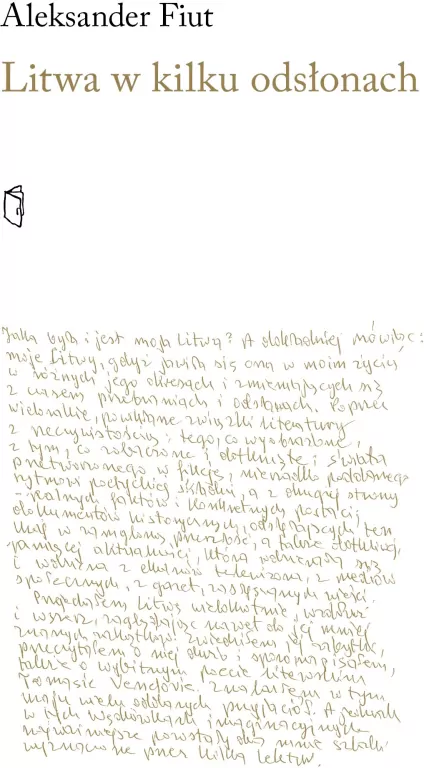 Aleksander Fiut
Litwa w kilku odsłonach
Jaka była i jest moja Litwa? A dokładniej mówiąc:
moje Litwy, gdyż jawiła się ona w moim życiu
w różnych jego okresach i zmieniających się
z czasem przebraniach i odsłonach. Poprzez
wielorakie, powikłane związki literatury
z rzeczywistością i tego, co wyobrażone,
z tym, co zobaczone i dotknięte i świata
przetworzonego w fikcję, nierzadko poddanego
rytmowi poetyckiej składni, a z drugiej strony
– realnych faktów i konkretnych postaci,
dokumentów historycznych, odsłaniających ten
kraj w zamgloną przeszłość, a także dotkliwej,
pamięcej aktualności, która wdzierała się
i wdziera z ekranów telewizora, z mediów
społecznych, z gazet, zasłyszanych wieści.
Przejechałem Litwę wielokrotnie, wzdłuż
i wszerz, zaglądając nawet do jej mniej
znanych zakątków. Zwiedziłem jej zabytki,
przeczytałem o niej dużo i sporo napisałem,
także o wybitnym poecie litewskim
Tomasie Venclovie. Znalazłem w tym
kraju wielu oddanych przyjaciół. A jednak
w tych wędrówkach imaginacyjnych
najważniejsze pozostały dla mnie szlaki
wyznaczone przez kilka lektur.